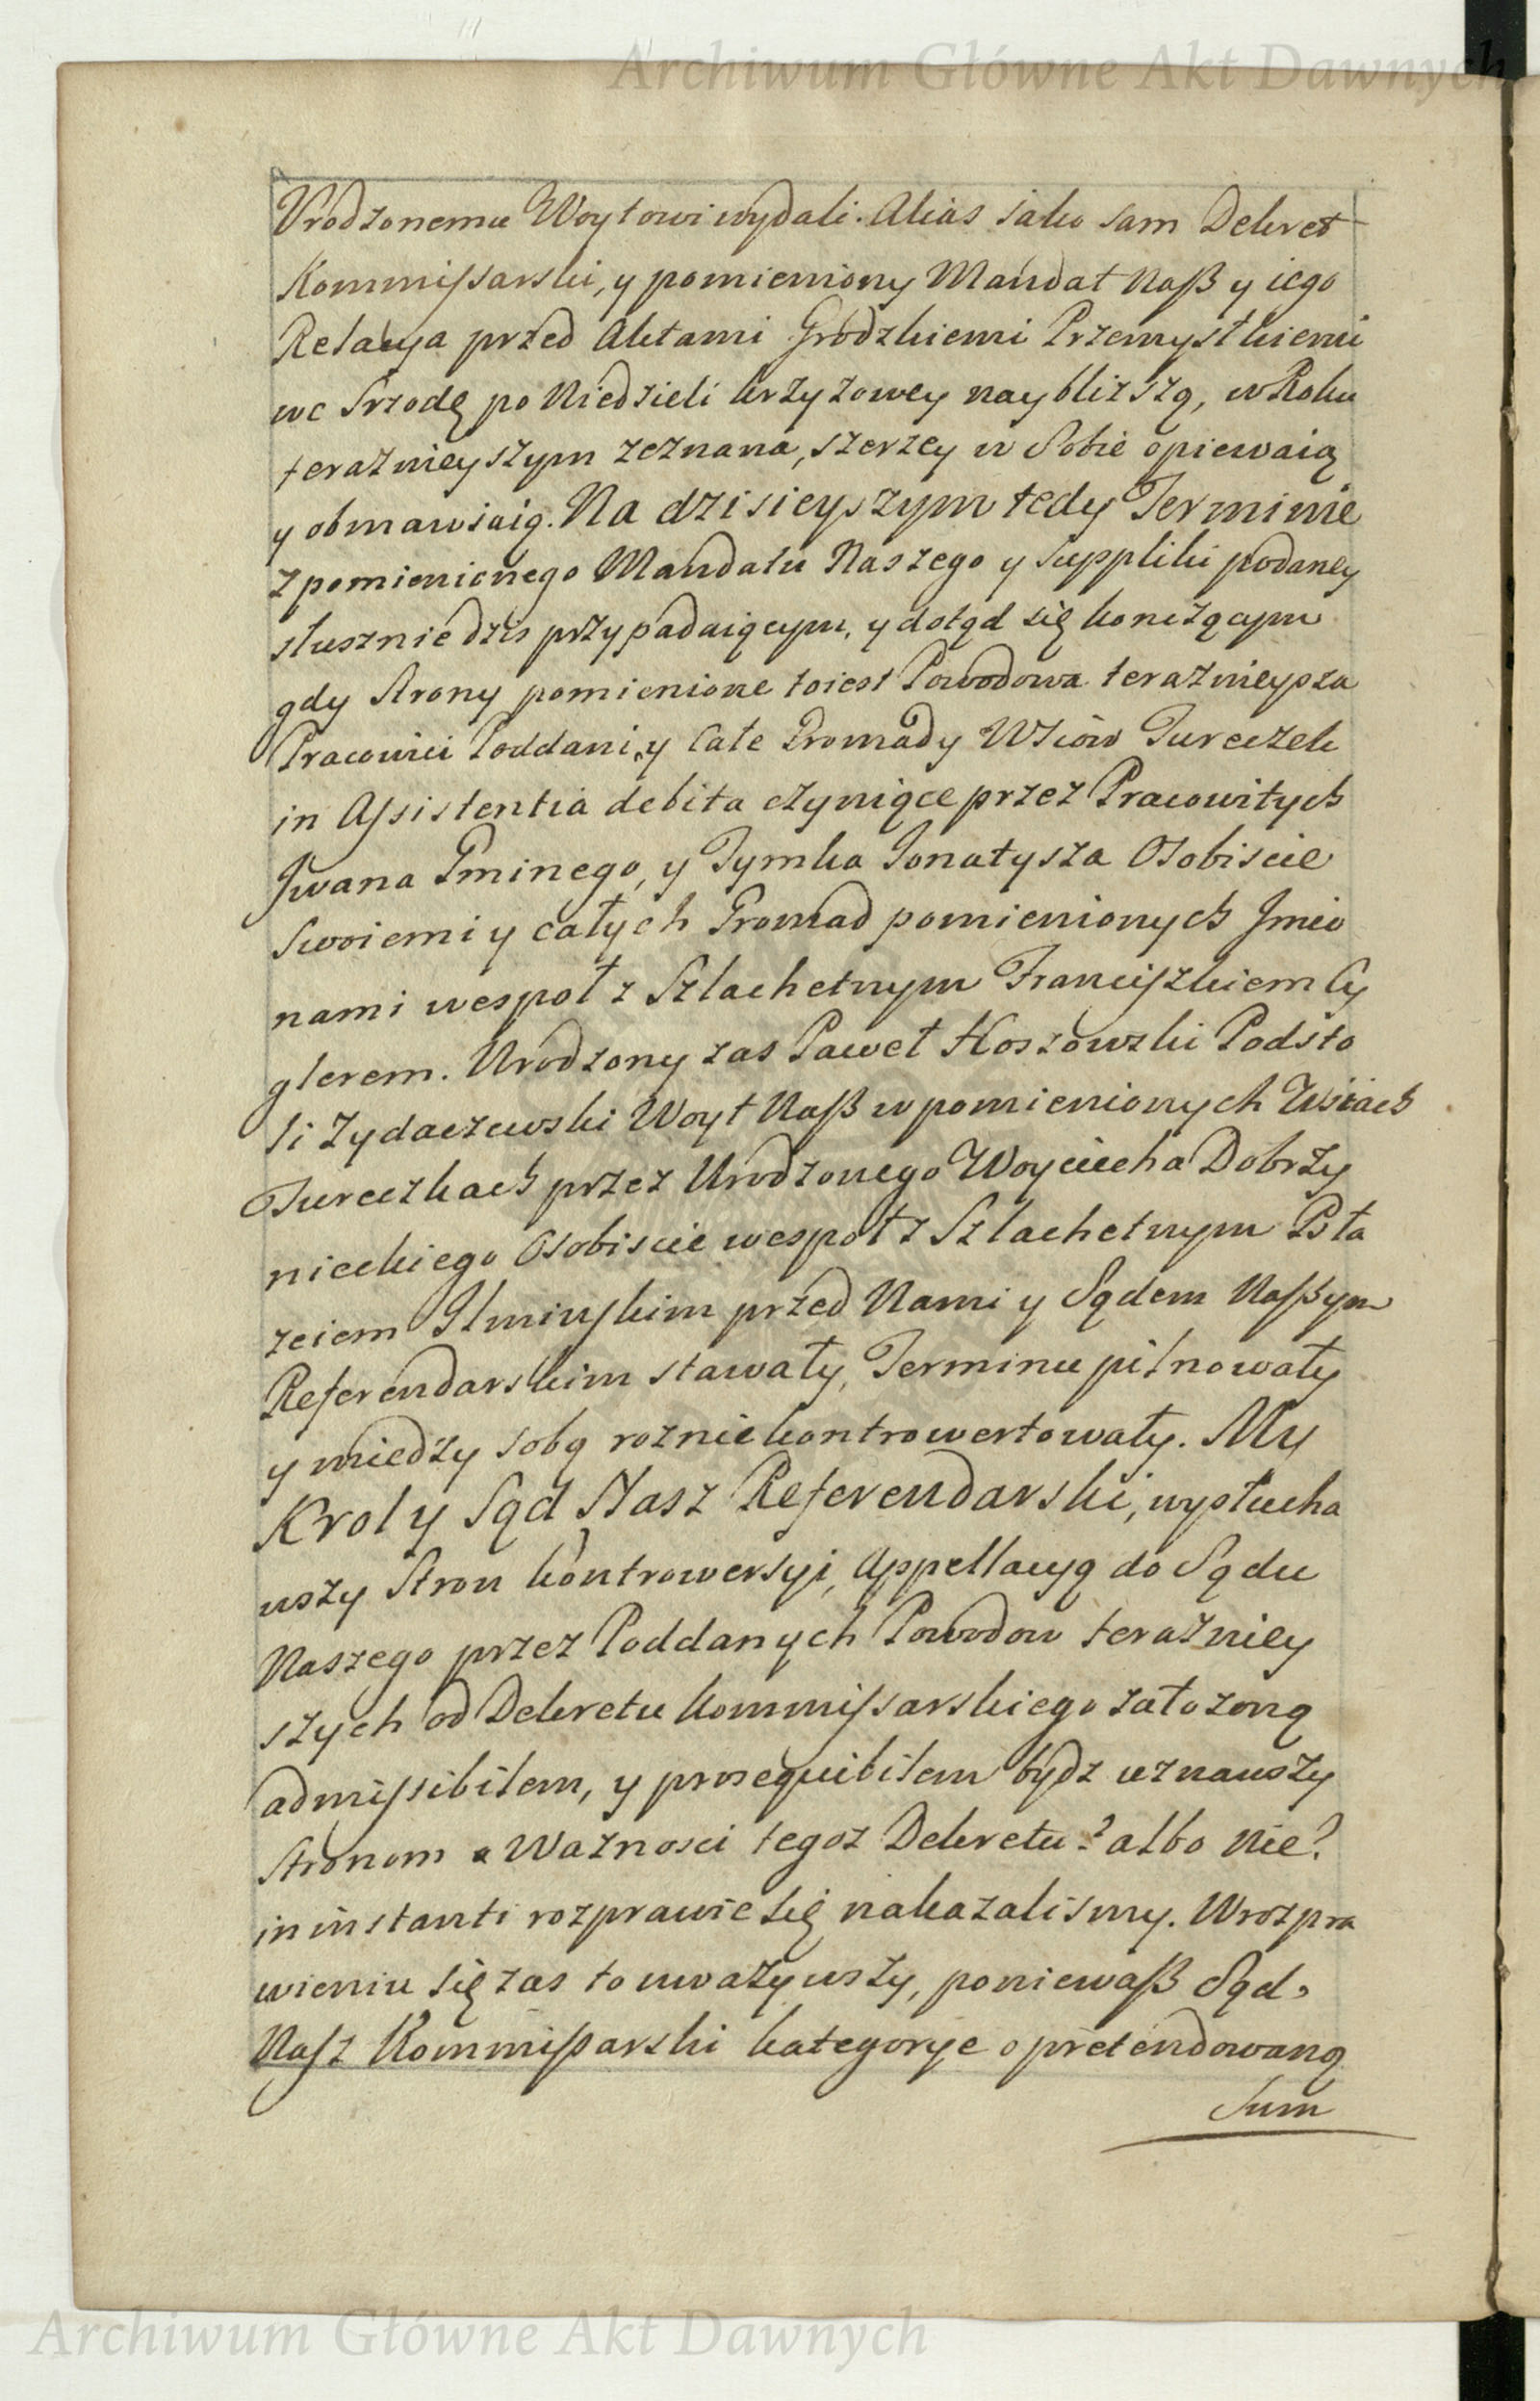 Archiwum Główne Akt Dawnych
Vrodzonemu Woytowi wydali. Alias iako sam Dekret
Kommissarski, y pomieniony Mandat Naß y iego
Relacya przed Aktami Grodzkiemi Przemyslkiemi
we Srzodę po Niedzieli krzyzowey naybliższą, w Roku
teraznieyszym zeznana, szerzey w Sobie opiewaią
y obmawiaią. Na dzisieyszym tedy Terminie
z pomienionego Mandatu Naszego y Suppliki podaney
słusznie dzis przypadaiącym, y dotąd się konczącym
gdy Strony pomienione toiest Powodowa teraznieysza
Pracowici Poddani, y Całe Gromady Wsiow Tureczek
in Assistentia debita czyniące przez Pracowitych
Jwana Gminego, y Tymka Jonatysza Osobiscie
Swoiemi y całych Gromad pomienionych Jmio
nami wespoł z Szlachetnym Franciszkiem Cy
glerem. Urodzony zas Paweł Hoszowski Podsto
li Zydaczewski Woyt Naß w pomienionych Wsiach
Tureczkach przez Urodzonego Woyciecha Dobrzy
nieckiego Osobiscie wespoł z Szlachetnym Bła
zeiem Jlminskim przed Nami y Sądem Naßym
Referendarskim stawały, Terminu pilnowały
y miedzy sobą roznie kontrowertowały. My
Krol y Sąd Nasz Referendarski, wysłucha
wszy Stron kontrowersyi, Appellacyą do Sądu
Naszego przez Poddanych Powodow terazniey
szych od Dekretu Kommissarskiego założoną
admissibilem, y prosequibilem bydz uznawszy
Stronom o Wazności tegoz Dekretu? albo Nie?
in instanti rozprawic się nakazalismy. W rozpra
wieniu się zas to uwazywszy, poniewaß Sąd
Nasz Kommissarski kategorye o pretendowaną
Sum
Archiwum Główne Akt Dawnych